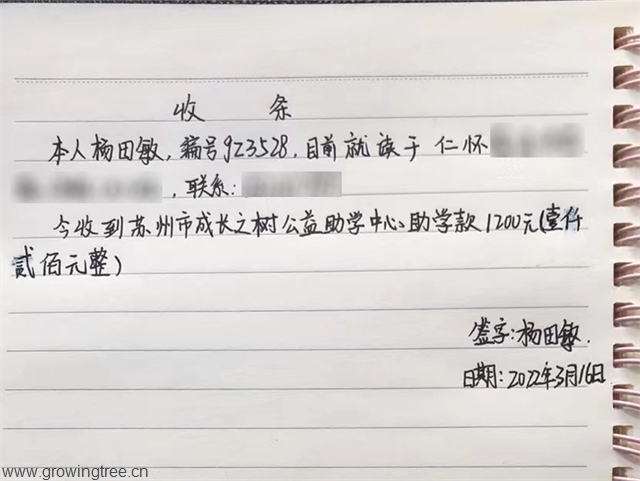 收 条
本人杨田敏,编号923528,目前就读于 仁怀
,联系:
今收到苏州市成长之树公益助学中心助学款1200元(壹仟
贰佰元整)
签字:杨田敏.
日期:2022年3月16日
www.growingtree.cn